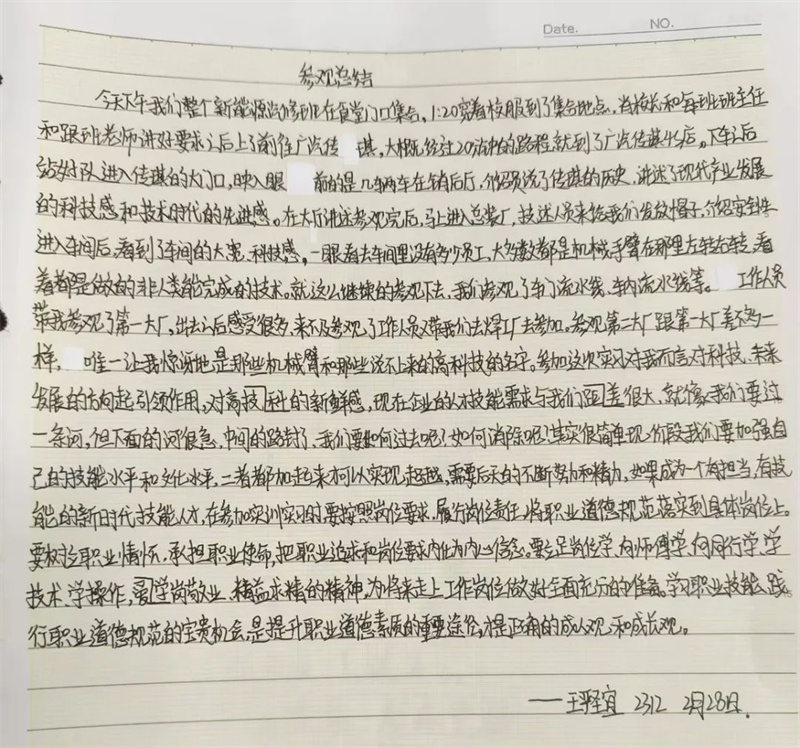 Date. NO.
参观总结
今天下午我们整个新能源汽修班在食堂门口集合,1:20穿着校服到了集合地点,当校长和每班班主任
和跟班老师讲好要求之后上了前往广汽传 祺,大概经过20分钟的路程就到了广汽传祺4S店。下车之后
站好队进入传祺的大门口,映入眼 前的是几辆车在销后厅,介绍员说了传祺的历史,讲述了现代产业发展
的科技感和技术时代的先进感。在大厅讲述参观完后,马上进入总装厂,技述人员来给我们发放帽子,介绍安全事
进入车间后,看到了车间的大宽、科技感。一眼看去车间里没有多少员工,大多数都是机械手臂在那里左转右转,看
着都是做的非人类能完成的技术。就这么继续的参观下去,我们参观了车门流水线、车内流水线等。 工作人员
带我参观了第一大厂,出去之后感受很多,来不及参观了工作人员又带我们去焊工厂去参加。参观第二大厂跟第一大厂差不多一
样, 唯一让我惊讶地是那些机械臂和那些说不上来的高科技的名字。参加这次实习对我而言对科技、未来
发展的方向起引领作用,对高技科的新鲜感,现在企业的人对技能需求与我们的差很大、就像我们要过
一条河,但下面的河很急,中间的路封了、我们要如何过去呢?如何消除呢?其实很简单现阶段我们要加强自
己的技能水平和文化水平,二者都加起来才可以实现超越,需要后天的不断努力和精力,如果成为一个有担当,有技
能的新时代技能人才,在参加实训实习时要按照岗位要求,履行岗位责任,将职业道德规范落实到具体岗位上。
要树立职业情怀、承担职业使命,把职业追求和岗位要求内化为内心信念。要立足岗位学,向师傅学,向同行学,学
技术、学操作,爱学岗敬业、精益求精的精神,为将来走上工作岗位做好全面充分的准备。学习职业技能、践
行职业道德规范的宝贵机会,是提升职业道德素质的重要途径,才是正确的成人观和成长观。
——王 宜 2312 2月28日.